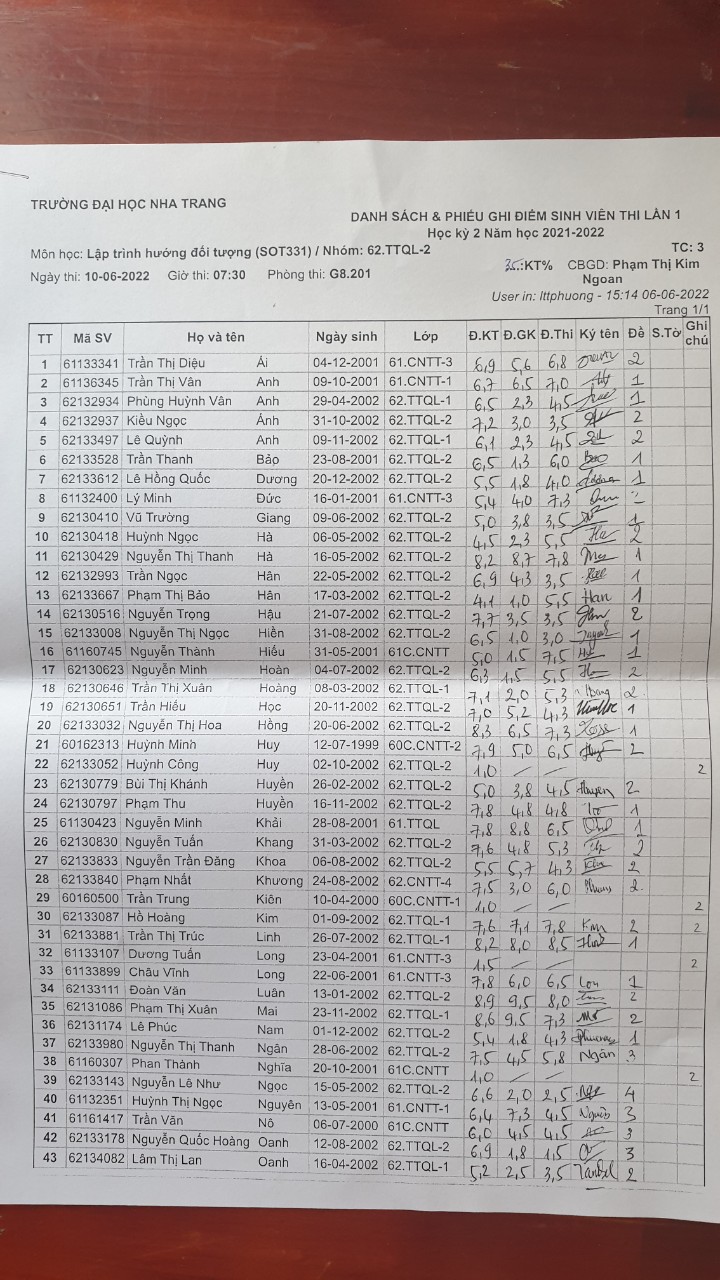 TRƯỜNG ĐẠI HỌC NHA TRANG
DANH SÁCH & PHIẾU GHI ĐIỂM SINH VIÊN THI LẦN 1
Học kỳ 2 Năm học 2021-2022
Môn học: Lập trình hướng đối tượng (SOT331) / Nhóm: 62.TTQL-2 TC: 3
Ngày thi: 10-06-2022 Giờ thi: 07:30 Phòng thi: G8.201 35.:KT% CBGD: Phạm Thị Kim
Ngoan
User in: lttphuong - 15:14 06-06-2022
Trang 1/1
TT Mã SV Họ và tên Ngày sinh Lớp Đ.KT Đ.GK Đ.Thi Ký tên Đề S.Tờ Ghi chú
1 61133341 Trần Thị Diệu Ái 04-12-2001 61.CNTT-3 6,9 5,6 6,8 2
2 61136345 Trần Thị Vân Anh 09-10-2001 61.CNTT-1 6,7 6,5 7,0 1
3 62132934 Phùng Huỳnh Vân Anh 29-04-2002 62.TTQL-1 6,5 2,3 4,5 1
4 62132937 Kiều Ngọc Ánh 31-10-2002 62.TTQL-2 7,2 3,0 3,5 2
5 62133497 Lê Quỳnh Anh 09-11-2002 62.TTQL-1 6,1 2,3 4,5 2
6 62133528 Trần Thanh Bảo 23-08-2001 62.TTQL-2 6,5 1,3 6,0 Bảo 1
7 62133612 Lê Hồng Quốc Dương 20-12-2002 62.TTQL-2 5,5 1,8 4,0 1
8 61132400 Lý Minh Đức 16-01-2001 61.CNTT-3 5,4 4,0 7,3
9 62130410 Vũ Trường Giang 09-06-2002 62.TTQL-2 5,0 3,8 3,5 1
10 62130418 Huỳnh Ngọc Hà 06-05-2002 62.TTQL-2 4,5 2,3 5,5 Ha 2
11 62130429 Nguyễn Thị Thanh Hà 16-05-2002 62.TTQL-2 8,2 8,7 7,8 1
12 62132993 Trần Ngọc Hân 22-05-2002 62.TTQL-2 6,9 4,3 3,5 1
13 62133667 Phạm Thị Bảo Hân 17-03-2002 62.TTQL-2 4,1 1,0 5,5 Han 1
14 62130516 Nguyễn Trọng Hậu 21-07-2002 62.TTQL-2 7,7 3,5 3,5 2
15 62133008 Nguyễn Thị Ngọc Hiền 31-08-2002 62.TTQL-2 6,5 1,0 3,0 1
16 61160745 Nguyễn Thành Hiếu 31-05-2001 61C.CNTT 5,0 1,5 7,5 1
17 62130623 Nguyễn Minh Hoàn 04-07-2002 62.TTQL-2 6,3 1,5 5,5 2
18 62130646 Trần Thị Xuân Hoàng 08-03-2002 62.TTQL-1 7,1 2,0 5,3 2
19 62130651 Trần Hiếu Học 20-11-2002 62.TTQL-2 7,0 5,2 4,3 1
20 62133032 Nguyễn Thị Hoa Hồng 20-06-2002 62.TTQL-2 8,3 6,5 7,3 1
21 60162313 Huỳnh Minh Huy 12-07-1999 60C.CNTT-2 7,9 5,0 6,5 Huy 2
22 62133052 Huỳnh Công Huy 02-10-2002 62.TTQL-2 1,0 — — 2
23 62130779 Bùi Thị Khánh Huyền 26-02-2002 62.TTQL-2 5,0 3,8 4,5 Huyen 2
24 62130797 Phạm Thu Huyền 16-11-2002 62.TTQL-2 7,8 4,8 4,8 1
25 61130423 Nguyễn Minh Khải 28-08-2001 61.TTQL 7,8 8,8 6,5 1
26 62130830 Nguyễn Tuấn Khang 31-03-2002 62.TTQL-2 7,6 4,8 5,3 2
27 62133833 Nguyễn Trần Đăng Khoa 06-08-2002 62.TTQL-2 5,5 5,7 4,3 2
28 62133840 Phạm Nhất Khương 24-08-2002 62.CNTT-4 7,5 3,0 6,0 2
29 60160500 Trần Trung Kiên 10-04-2000 60C.CNTT-1 1,0 — — 2
30 62133087 Hồ Hoàng Kim 01-09-2002 62.TTQL-1 7,6 7,1 7,8 Kim 2 2
31 62133881 Trần Thị Trúc Linh 26-07-2002 62.TTQL-1 8,2 8,0 8,5 1
32 61133107 Dương Tuấn Long 23-04-2001 61.CNTT-3 1,5 — — 2
33 61133899 Châu Vĩnh Long 22-06-2001 61.CNTT-3 7,8 6,0 6,5 1
34 62133111 Đoàn Văn Luân 13-01-2002 62.TTQL-2 8,9 9,5 8,0 2
35 62131086 Phạm Thị Xuân Mai 23-11-2002 62.TTQL-1 8,6 9,5 7,3 2
36 62131174 Lê Phúc Nam 01-12-2002 62.TTQL-2 5,4 1,8 4,3 1
37 62133980 Nguyễn Thị Thanh Ngân 28-06-2002 62.TTQL-2 7,5 4,5 5,8 Ngân 3
38 61160307 Phan Thành Nghĩa 20-10-2001 61C.CNTT 1,0 — — 2
39 62133143 Nguyễn Lê Như Ngọc 15-05-2002 62.TTQL-2 6,6 2,0 2,5 4
40 61132351 Huỳnh Thị Ngọc Nguyên 13-05-2001 61.CNTT-1 6,4 7,3 4,5 3
41 61161417 Trần Văn Nô 06-07-2000 61C.CNTT 6,0 4,5 4,5 3
42 62133178 Nguyễn Quốc Hoàng Oanh 12-08-2002 62.TTQL-2 6,9 1,8 1,5 3
43 62134082 Lâm Thị Lan Oanh 16-04-2002 62.TTQL-1 5,2 2,5 3,5 2